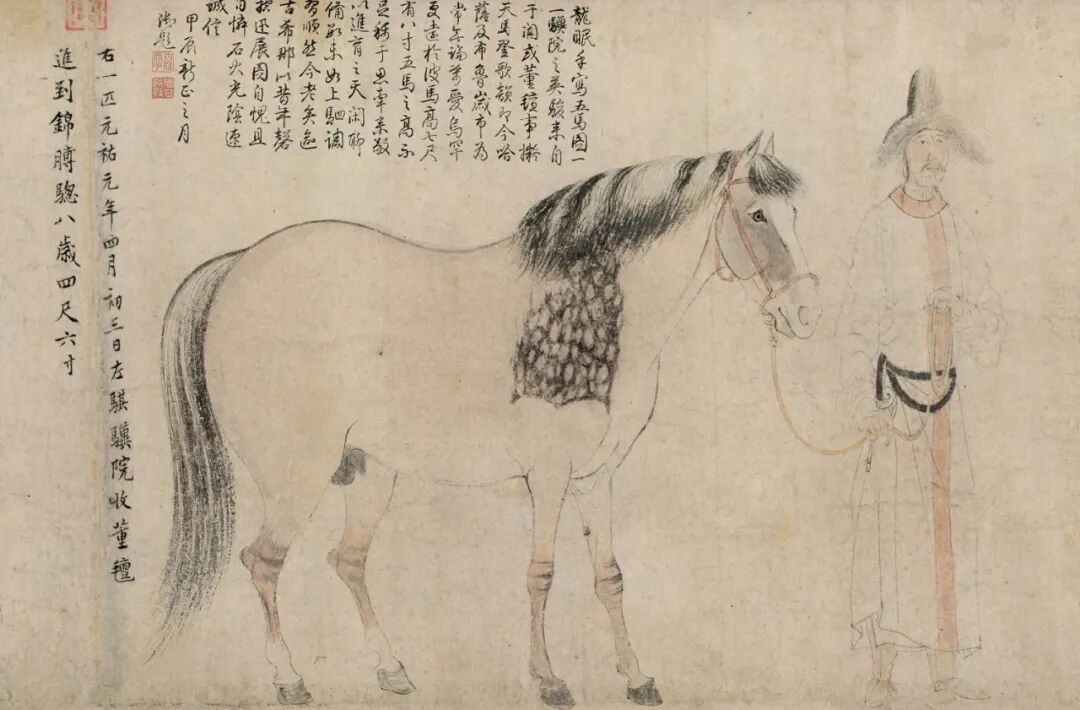 龍眠手寫五馬圖一
一驥院之英駿來自
于闐或董氊事擬
天馬登歌頌即今哈
薩及布魯歲市為
常無瑞著愛烏罕
更遠於渡馬高七尺
有八寸五馬之高不
足稱于思牽來敬
以進育之天閑聊
備數未如上駟調
習順然今老矣逾
古希那以昔年磬
控迅展圖自愧且
自憐石火光陰速
誠信
甲辰新正之月
御題
右一匹元祐元年四月初三日左騏驥院收董氊
進到錦膊驄八歲四尺六寸